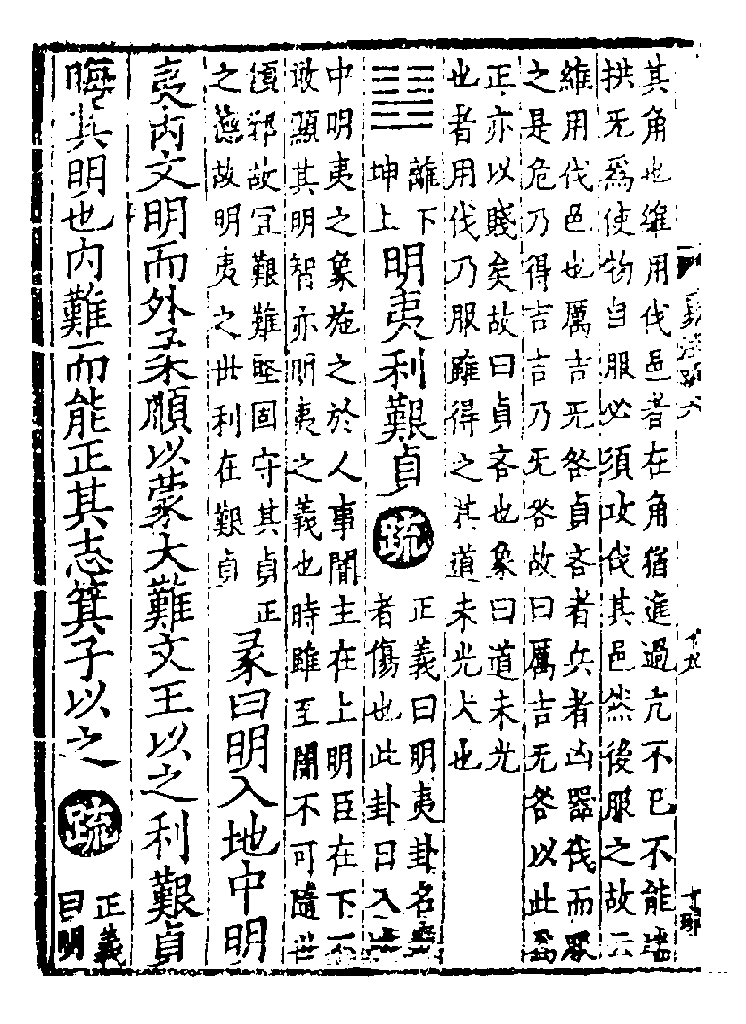 其角也維用伐邑者在角猶進過亢不已不能端
拱无爲使物自服必須攻伐其邑然後服之故云
維用伐邑也厲吉无咎貞吝者兵者凶器伐而服
之是危乃得吉吉乃无咎故曰厲吉无咎以此爲
正亦以賤矣故曰貞吝也象曰道未光
也者用伐乃服雖得之其道未光大也
離下
坤上
明夷利艱貞
疏
正義曰明夷卦名夷
者傷也此卦日入地
中明夷之象施之於人事闇主在上明臣在下不
敢顯其明智亦明夷之義也時雖至闇不可隨世
傾邪故宜艱難堅固守其貞正
之德故明夷之世利在艱貞
彖曰明入地中明
夷内文明而外柔順以蒙大難文王以之利艱貞
晦其明也内難而能正其志箕子以之
疏
正義
曰明